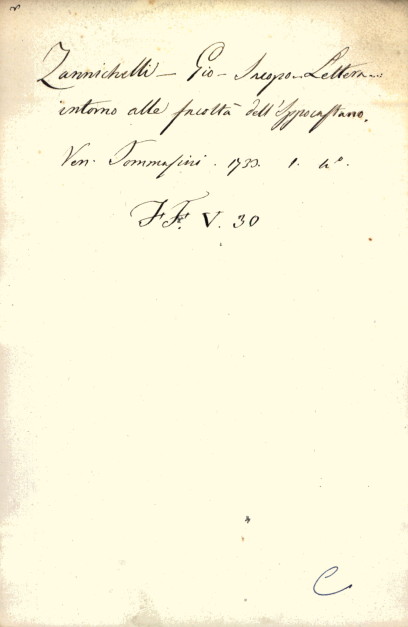 Zannichelli - Gio - Jacopo - Lettera
intorno alle facoltà dell'Ippocastano.
Ven. Tommasini. 1733. 1. 4°.
FF. V. 30
C